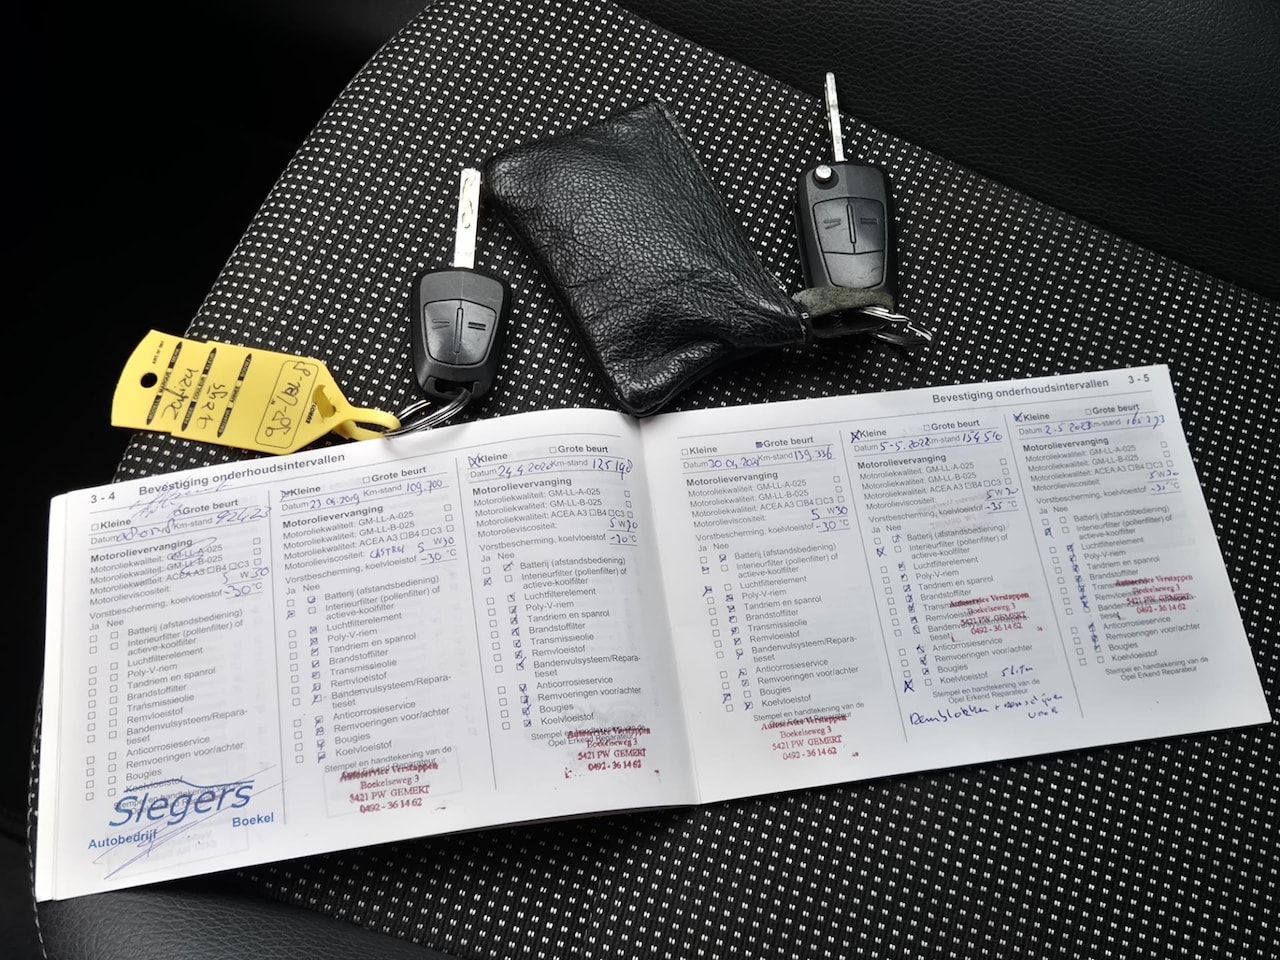 3 - 4 Bevestiging onderhoudsintervallen
☐Kleine Grote beurt
Datum Km-stand 92423
Motorolievervanging
Motoroliekwaliteit: GM-LL-A-025 ☐
Motoroliekwaliteit: GM-LL-B-025 ☐
Motoroliekwaliteit: ACEA A3 ☐B4 ☐C3
Motorolieviscositeit: 5 W 30
Vorstbescherming, koelvloeistof -30 °C
Ja Nee
☐ ☐ Batterij (afstandsbediening)
☐ ☐ Interieurfilter (pollenfilter) of
actieve-koolfilter
☐ ☐ Luchtfilterelement
☐ ☐ Poly-V-riem
☐ ☐ Tandriem en spanrol
☐ ☐ Brandstoffilter
☐ ☐ Transmissieolie
☐ ☐ Remvloeistof
☐ ☐ Bandenvulsysteem/Repara-
tieset
☐ ☐ Anticorrosieservice
☐ ☐ Remvoeringen voor/achter
☐ ☐ Bougies
☐ ☐ Koelvloeistof
Slegers
Autobedrijf Boekel
☒Kleine ☐Grote beurt
Datum 23 04 2019 Km-stand 109.700
Motorolievervanging
Motoroliekwaliteit: GM-LL-A-025 ☐
Motoroliekwaliteit: GM-LL-B-025 ☐
Motoroliekwaliteit: ACEA A3 ☐B4 ☐C3
Motorolieviscositeit: CASTROL 5 W30
Vorstbescherming, koelvloeistof -30 °C
Ja Nee
Batterij (afstandsbediening)
Interieurfilter (pollenfilter) of
actieve-koolfilter
Luchtfilterelement
Poly-V-riem
Tandriem en spanrol
Brandstoffilter
Transmissieolie
Remvloeistof
Bandenvulsysteem/Repara-
tieset
Anticorrosieservice
Remvoeringen voor/achter
Bougies
Koelvloeistof
Stempel en handtekening van de
Autoservice Verstappen
Boekelseweg 3
5421 PW GEMERT
0492 - 36 14 62
☒Kleine ☐Grote beurt
Datum 24.4.2020 Km-stand 125198
Motorolievervanging
Motoroliekwaliteit: GM-LL-A-025 ☐
Motoroliekwaliteit: GM-LL-B-025 ☐
Motoroliekwaliteit: ACEA A3 ☐B4 ☐C3
Motorolieviscositeit: 5 W30
Vorstbescherming, koelvloeistof -30 °C
Ja Nee
Batterij (afstandsbediening)
Interieurfilter (pollenfilter) of
actieve-koolfilter
Luchtfilterelement
Poly-V-riem
Tandriem en spanrol
Brandstoffilter
Transmissieolie
Remvloeistof
Bandenvulsysteem/Repara-
tieset
Anticorrosieservice
Remvoeringen voor/achter
Bougies
Koelvloeistof
Autoservice Verstappen
Boekelseweg 3
5421 PW GEMERT
0492 - 36 14 62
Bevestiging onderhoudsintervallen 3 - 5
☐Kleine ☒Grote beurt
Datum 20 04 2021 Km-stand 139.336
Motorolievervanging
Motoroliekwaliteit: GM-LL-A-025 ☐
Motoroliekwaliteit: GM-LL-B-025 ☐
Motoroliekwaliteit: ACEA A3 ☐B4 ☐C3
Motorolieviscositeit: 5 W 30
Vorstbescherming, koelvloeistof -30 °C
Ja Nee
Batterij (afstandsbediening)
Interieurfilter (pollenfilter) of
actieve-koolfilter
Luchtfilterelement
Poly-V-riem
Tandriem en spanrol
Brandstoffilter
Transmissieolie
Remvloeistof
Bandenvulsysteem/Repara-
tieset
Anticorrosieservice
Remvoeringen voor/achter
Bougies
Koelvloeistof
Stempel en handtekening van de
Autoservice Verstappen
Boekelseweg 3
5421 PW GEMERT
0492 - 36 14 62
☒Kleine ☐Grote beurt
Datum 5-5-2022 Km-stand 154510
Motorolievervanging
Motoroliekwaliteit: GM-LL-A-025 ☐
Motoroliekwaliteit: GM-LL-B-025 ☐
Motoroliekwaliteit: ACEA A3 ☐B4 ☐C3
Motorolieviscositeit: 5 W 30
Vorstbescherming, koelvloeistof -35 °C
Ja Nee
Batterij (afstandsbediening)
Interieurfilter (pollenfilter) of
actieve-koolfilter
Luchtfilterelement
Poly-V-riem
Tandriem en spanrol
Brandstoffilter
Remvloeistof
tieset
Anticorrosieservice
Remvoeringen voor/achter
Bougies
Koelvloeistof
Stempel en handtekening van de
Opel Erkend Reparateur
Autoservice Verstappen
Boekelseweg 3
5421 PW GEMERT
0492 - 36 14 62
Remblokken + voor
☒Kleine ☐Grote beurt
Datum 2-5-2023 Km-stand
Motorolievervanging
Motoroliekwaliteit: GM-LL-A-025 ☐
Motoroliekwaliteit: GM-LL-B-025 ☐
Motoroliekwaliteit: ACEA A3 ☐B4 ☐C3
Motorolieviscositeit: 5 W 30
Vorstbescherming, koelvloeistof -35 °C
Ja Nee
Batterij (afstandsbediening)
Interieurfilter (pollenfilter) of
actieve-koolfilter
Luchtfilterelement
Poly-V-riem
Tandriem en spanrol
Brandstoffilter
Anticorrosieservice
Remvoeringen voor/achter
Bougies
Koelvloeistof
Stempel en handtekening van de
Opel Erkend Reparateur
Autoservice Verstappen
Boekelseweg 3
5421 PW GEMERT
0492 - 36 14 62